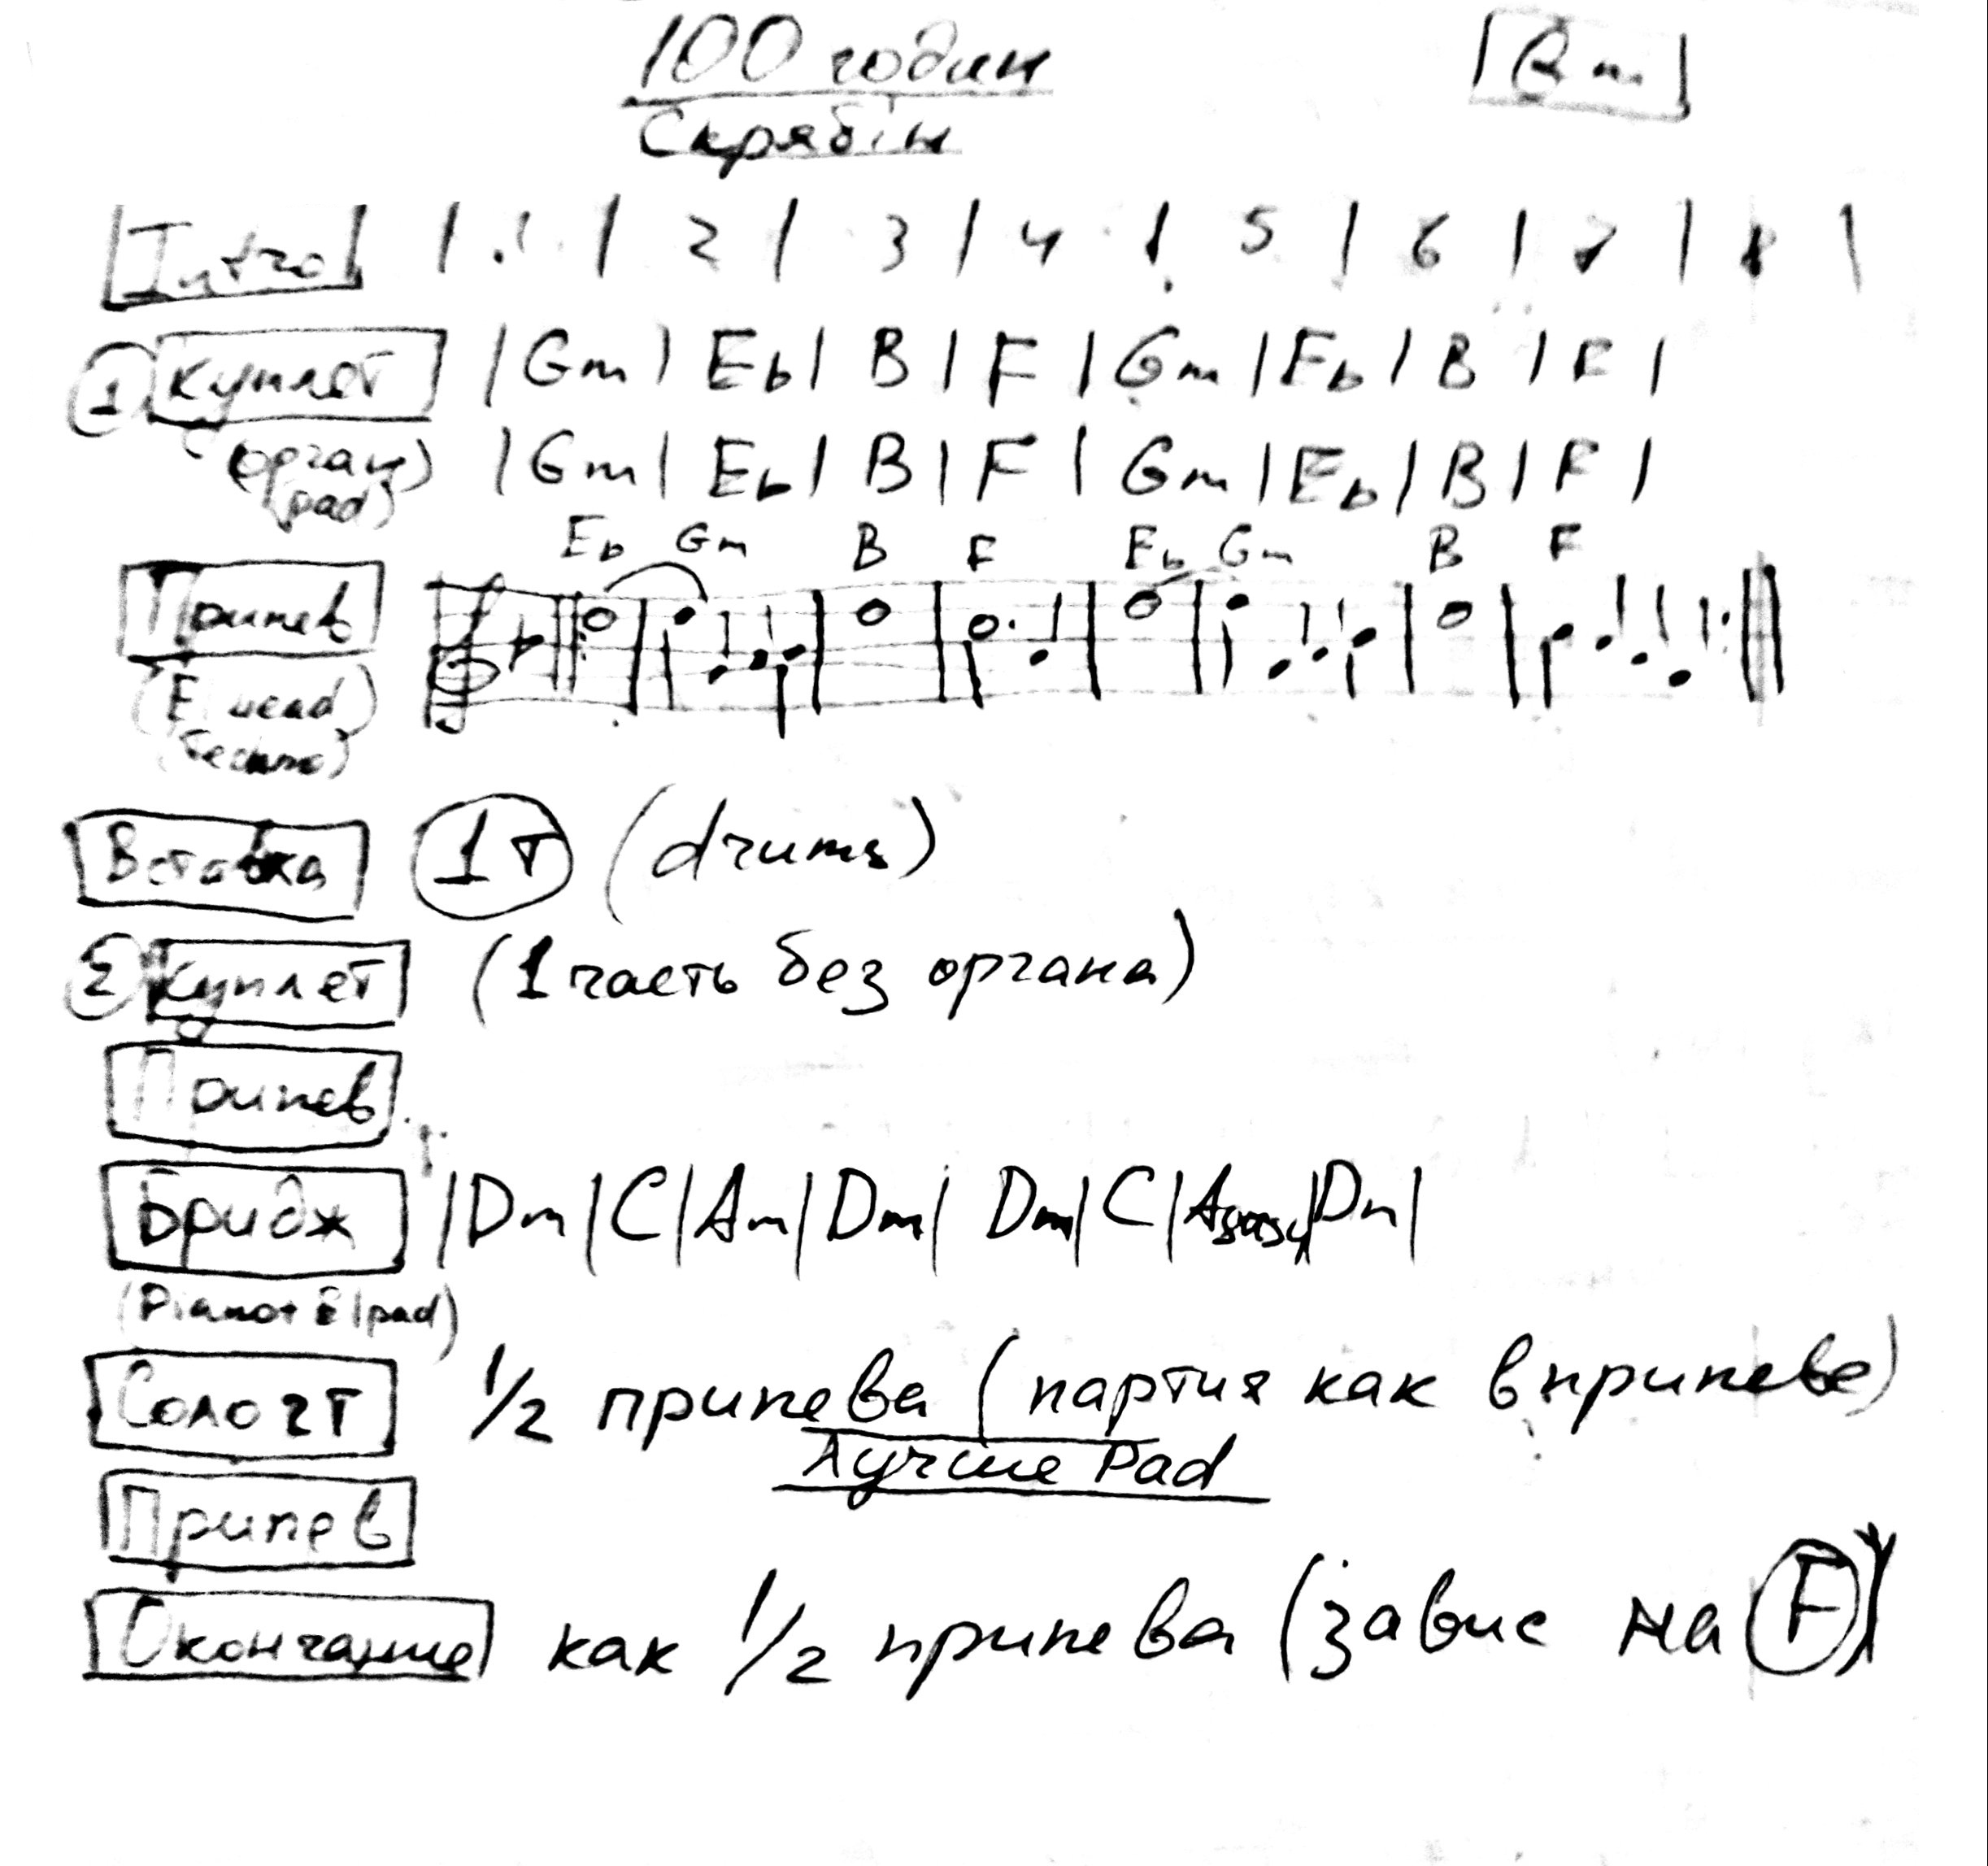 100 годин
Скрябін
Intro | 1 | 2 | 3 | 4 | 5 | 6 | 7 | 8 |
1 Куплет | Gm | Eb | B | F | Gm | Eb | B | F |
(орган | Gm | Eb | B | F | Gm | Eb | B | F |
pad)
Eb Gm B F Eb Gm B F
Припев
techno)
Вставка 1т (drums)
2 Куплет (1 часть без органа)
Припев
Бридж | Dm | C | Am | Dm | Dm | C | Asus4 | Dm |
(Piano + El pad)
Соло гт 1/2 припева (партия как в припеве)
Лучше Pad
Припев
Окончание как 1/2 припева (завис на F)